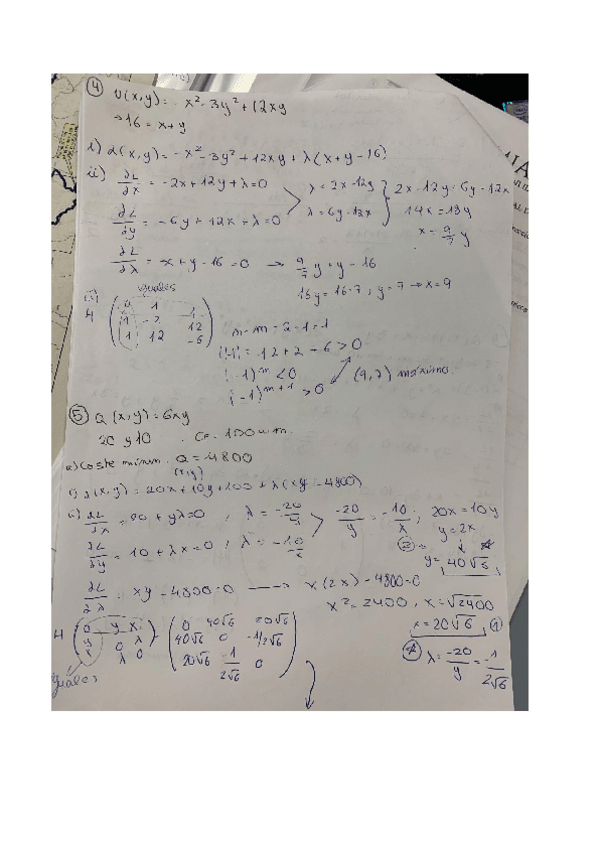 ④ U(x,y) = -x² - 3y² + 12xy
→ 16 = x + y
i) L(x,y) = -x² - 3y² + 12xy + λ(x + y - 16)
ii) ∂L/∂x = -2x + 12y + λ = 0 λ = 2x - 12y 2x - 12y = 6y - 12x
∂L/∂y = -6y + 12x + λ = 0 λ = 6y - 12x 14x = 18y
x = 9/7 y
∂L/∂λ = x + y - 16 = 0 → 9/7 y + y - 16
16y = 16·7, y = 7 → x = 9
iguales
iii)
H (0 1 1
1 -2 12
1 12 -6) n - m = 2 - 1 = 1
|H| = 12 + 2 + 6 > 0
(-1)^m < 0
(-1)^m+1 > 0 (9,7) máximo
⑤ Q(x,y) = 6xy
20 y 10 . CF = 100 u.m.
a) Coste mínim. Q = 4800
(x,y)
i) L(x,y) = 20x + 10y + 100 + λ(xy - 4800)
ii) ∂L/∂x = 20 + yλ = 0 ; λ = -20/y -20/y = -10/x ; 20x = 10y
y = 2x
∂L/∂y = 10 + λx = 0 ; λ = -10/x
② y = 40√6
∂L/∂λ = xy - 4800 = 0 → x(2x) - 4800 = 0
x² = 2400 , x = √2400
x = 20√6 ①
H (0 y x
y 0 λ
x λ 0) (0 40√6 20√6
40√6 0 -1/2√6
20√6 -1/2√6 0)
λ = -20/y = -1/2√6
iguales